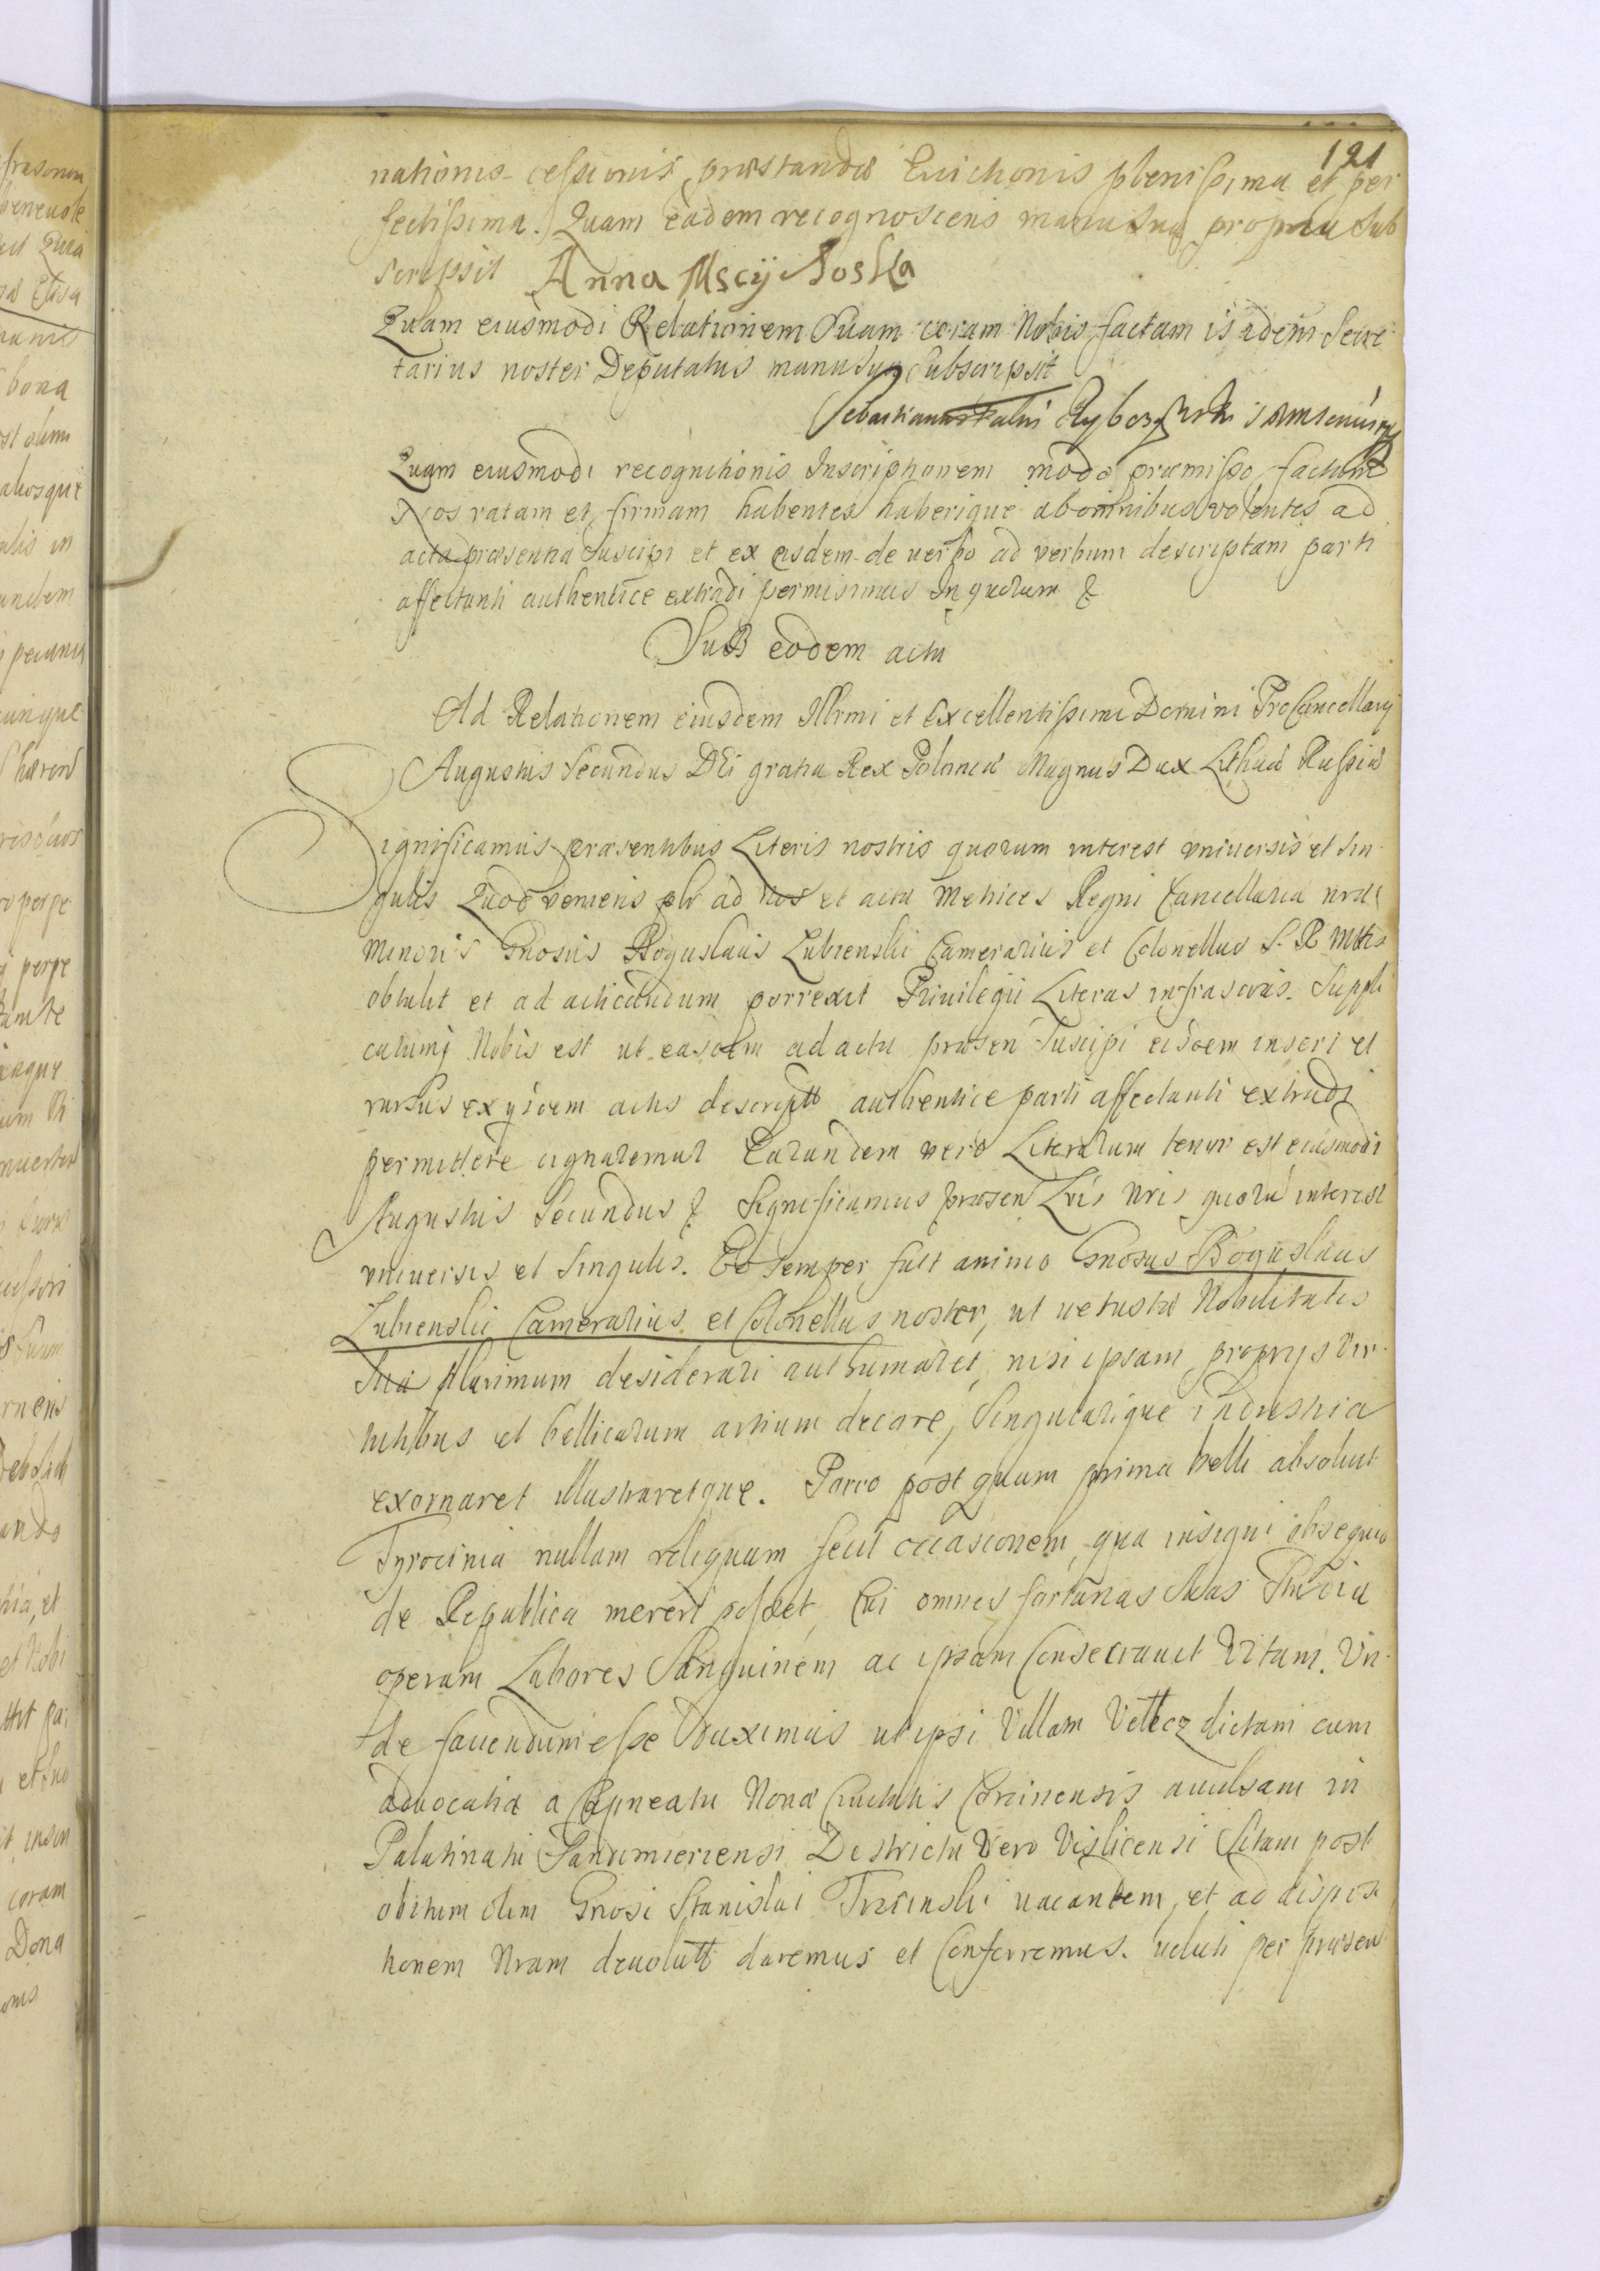 121
nationis cessionis, præstandæ Evictionis plenissima et per
fectissima. Quam eadem recognoscens manu sua propria sub
scripsit Anna Mscÿ
Quam eiusmodi Relationem Suam coram Nobis factam is idem Secre
tarius noster Deputatus manu sua subscripsit
Sebastianus
Quam eiusmodi recognitionis Inscriptionem modo præmisso factam
Nos ratam et firmam habentes haberique ab omnibus volentes ad
acta præsentia suscipi et ex eisdem de verbo ad verbum descriptam parti
affectanti authentice extradi permisimus In quorum &
Sub eodem actu
Ad Relationem eiusdem Illrmi et Excellentissimi Domini ProCancellarij
Augustus Secundus DEi gratia Rex Poloniæ Magnus Dux Lithuæ Russiæ
Significamus præsentibus Literis nostris quorum interest vniuersis et sin
gulis Quod veniens plr ad nos et acta Metrices Regni Cancellariæ nræ
Minoris Gnosus Boguslaus Lubienski Camerarius et Colonellus S. R. Mttis
obtulit et ad acticandum porrexit Priuilegii Literas infrascras. Suppli
catumq Nobis est ut easdem ad acta præsen suscipi eisdem inseri et
rursus ex ijsdem actis descriptt authentice parti affectanti extradi
permittere dignaremur Earundem vero Literarum tenor est eiusmodi
Augustus Secundus & Significamus præsen Lris nris quorū interest
vniuersis et singulis. Eo semper fuit animo Gnosus Boguslaus
Lubienski Camerarius et Colonellus noster, ut vetustæ Nobilitatis
suæ plurimum desiderari authumaret, nisi ipsam proprijs vir
tutibus et bellicarum artium decore, singularique industria
exornaret illustraretque. Porro postquam prima belli absoluit
Tyrocinia nullam reliquam fecit occasionem, qua insigni obsequio
de Republica mereri posset, Cui omnes fortunas suas studia
operam Labores Sanguinem ac ipsam Consecrauit Vitam. Vn
de fauendum esse duximus ut ipsi Villam Vełecz dictam cum
aduocatia a Capneatu Nouæ Ciuitatis Corcinensis auulsam in
Palatinatu Sandomiriensi Districtu Vero Vislicensi sitam post
obitum olim Gnosi Stanislai vacantem, et ad disposi
tionem Nram deuolutt daremus et Conferremus. veluti per præsen